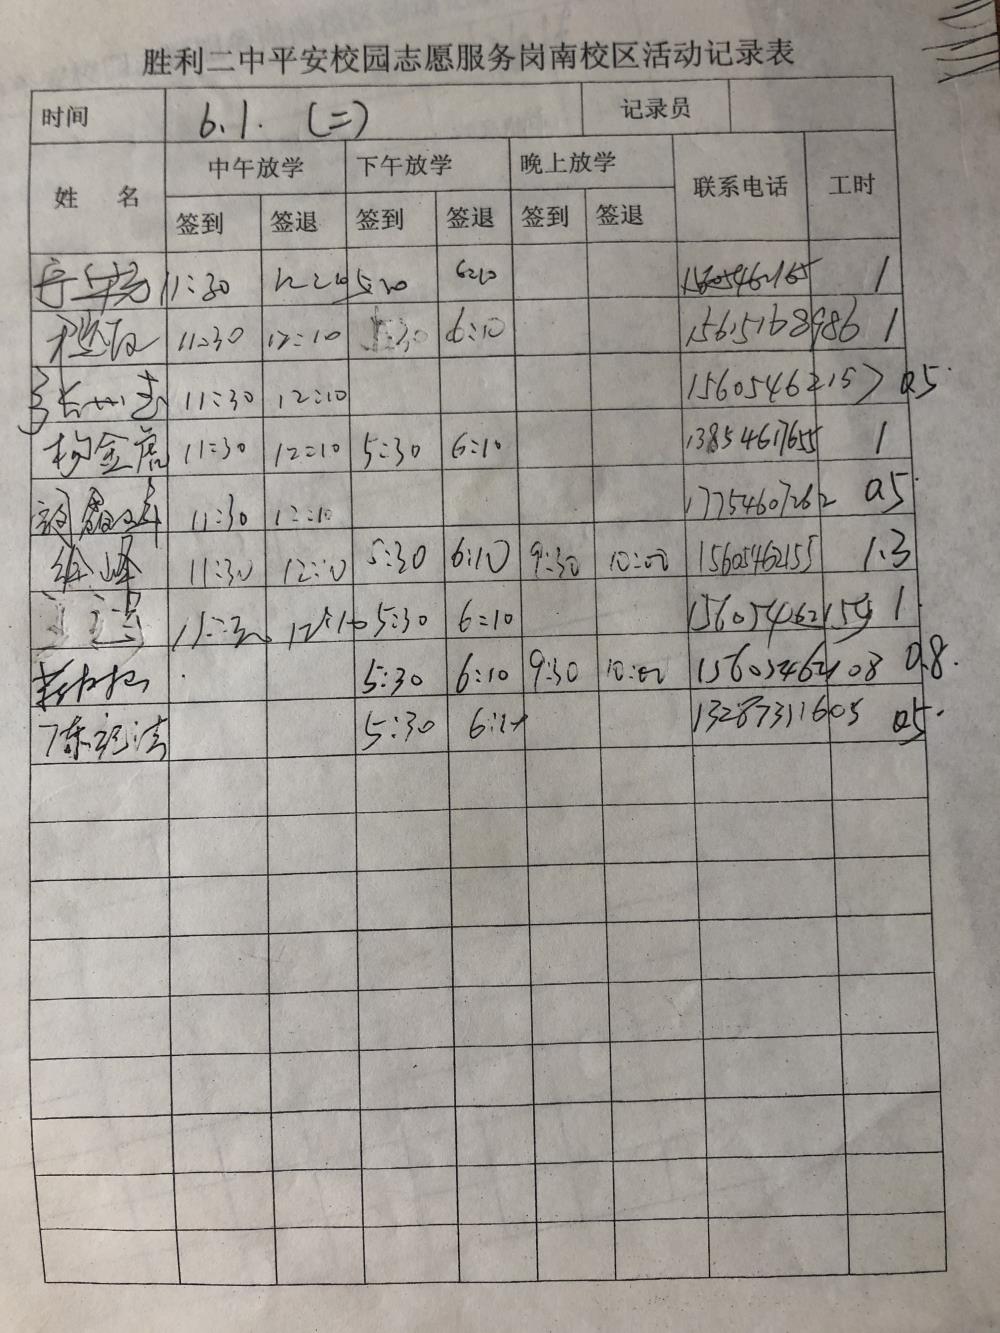 胜利二中平安校园志愿服务岗南校区活动记录表
时间 6.1. (二) 记录员
姓 名 中午放学 下午放学 晚上放学 联系电话 工时
签到 签退 签到 签退 签到 签退
11:30 12:10 5:30 6:10 1
11:30 12:10 5:30 6:10 15615168986 1
11:30 12:10 15605462157 0.5
杨金虎 11:30 12:10 5:30 6:10 13854617655 1
11:30 12:10 17754607262 0.5
徐峰 11:30 12:10 5:30 6:10 9:30 10:00 15605462155 1.3
11:30 12:10 5:30 6:10 15605462159 1
5:30 6:10 9:30 10:00 15605462108 0.8.
5:30 6:10 13287311605 0.5.